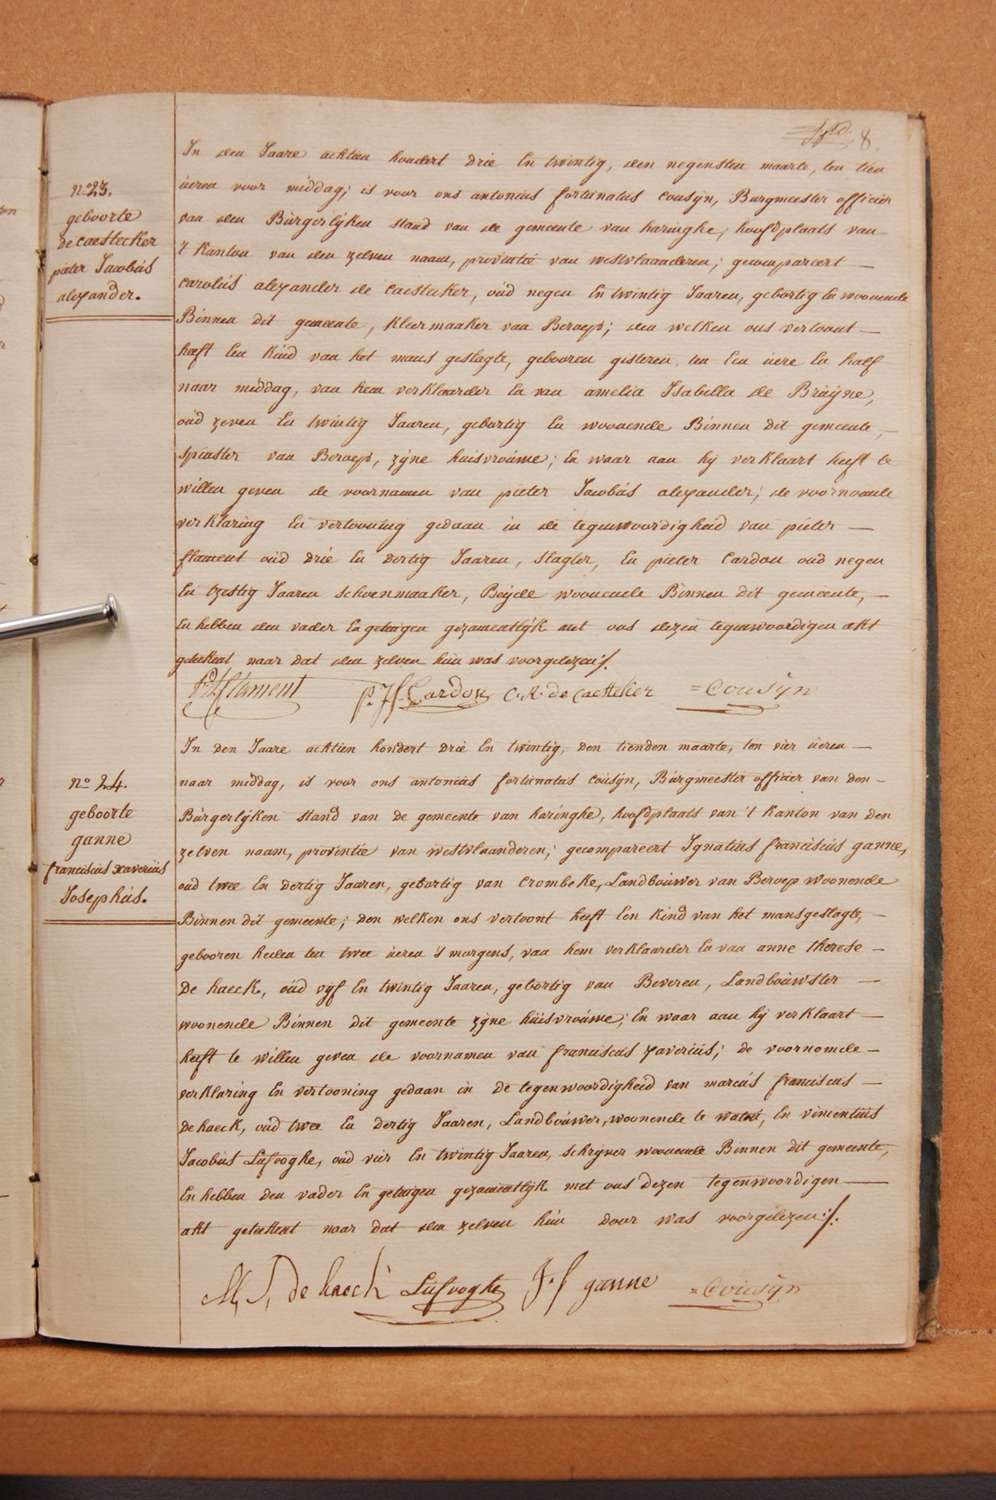 8.
n°23.
geboorte
de caestecker
pieter Jacobús
alexander.
In den Jaare achtien hondert drie En twintig, den negensten maarte, ten tien
úeren voor middag; is voor ons antonius fortúnatus coúsijn, Búrgmeester officier
van den Búrgerlijken stand van de gemeente van haringhe, hoofdplaats van
't kanton van den zelven naam, provintie van westvlaanderen; gecompareert
carolús alexander de caestecker, oúd negen En twintig Jaaren, gebortig En woonende
Binnen dit gemeente, kleermaaker van Beroep; den welken ons vertoont
heeft Een kind van het mans geslagte, gebooren gisteren, ten Een úere En half
naar middag, van hem verklaarder En van amelia Isabella de Brúijne,
oúd zeven En twintig Jaaren, gebortig En woonende Binnen dit gemeente,
spinster van Beroep, zijne húisvroúwe; En waar aan hij verklaart heeft te
willen geven de voornamen van pieter Jacobús alexander; de voornoemde
verklaring En vertooning gedaan in de tegenwoordigheid van pieter
flament oúd drie En dertig Jaaren, slagter, En pieter Cardon oúd negen
En tzestig Jaaren schoenmaaker, Beijde woonende Binnen dit gemeente,
En hebben den vader En getuigen gezamentlijk met ons dezen tegenwoordigen akt
geteekent naar dat den zelven hún was voorgelezen./.
P. J. flament P. J. Cardon C. A. de Caestecker =Coúsÿn
n° 24.
geboorte
ganne
franciscús xaveriús
Josephús.
In den Jaare achtien hondert drie En twintig, den tienden maarte, ten vier úeren
naar middag, is voor ons antoniús fortúnatus coúsijn, Búrgmeester officier van den
Búrgerlijken stand van de gemeente van haringhe, hoofdplaats van 't kanton van den
zelven naam, provintie van westvlaanderen; gecompareert Ignatiús franciscús ganne,
oúd twee En dertig Jaaren, gebortig van Crombeke, Landboúwer van Beroep woonende
Binnen dit gemeente; den welken ons vertoont heeft Een kind van het mansgeslagte,
gebooren heden ten twee úeren 's morgens, van hem verklaarder En van anne therese
De haeck, oúd vijf En twintig Jaaren, gebortig van Beveren, Landboúwster
woonende Binnen dit gemeente zijne húisvroúwe; En waar aan hij verklaart
heeft te willen geven de voornamen van franciscus xaveriús; de voornomde
verklaring En vertooning gedaan in de tegenwoordigheid van marcús franciscus
de haeck, oúd twee En dertig Jaaren, Landboúwer, woonende te watoú, En vincentiús
Jacobús Lúfvoghe, oúd vier En twintig Jaaren, schrijver woonende Binnen dit gemeente,
En hebben den vader En getuigen gezamentlijk met ons dezen tegenwoordigen
akt geteekent naar dat den zelven hún door was voorgelezen./.
de haeck Lúfvoghe J. f ganne =Coúsÿn